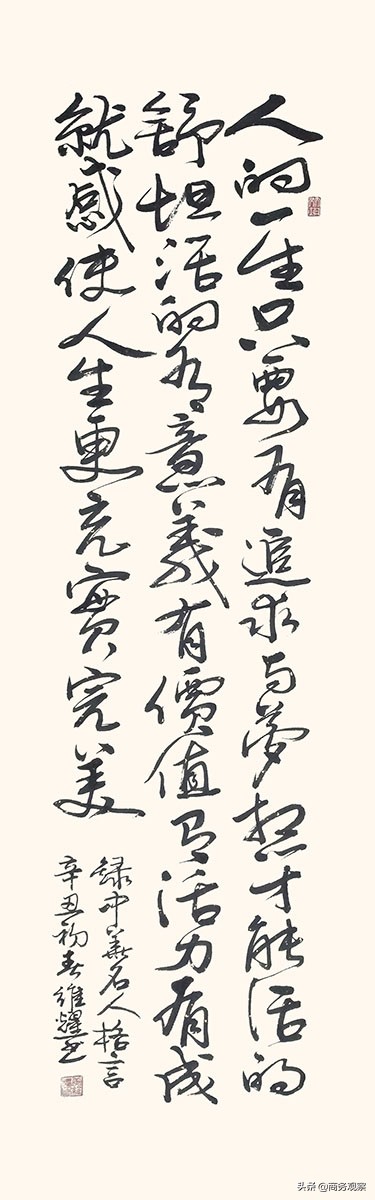 人的一生只要有追求与夢想才能活的
舒坦活的有意義有價值有活力有成
就感使人生更充實完美
録中華名人格言
辛丑初春維耀書
头条@商务观察